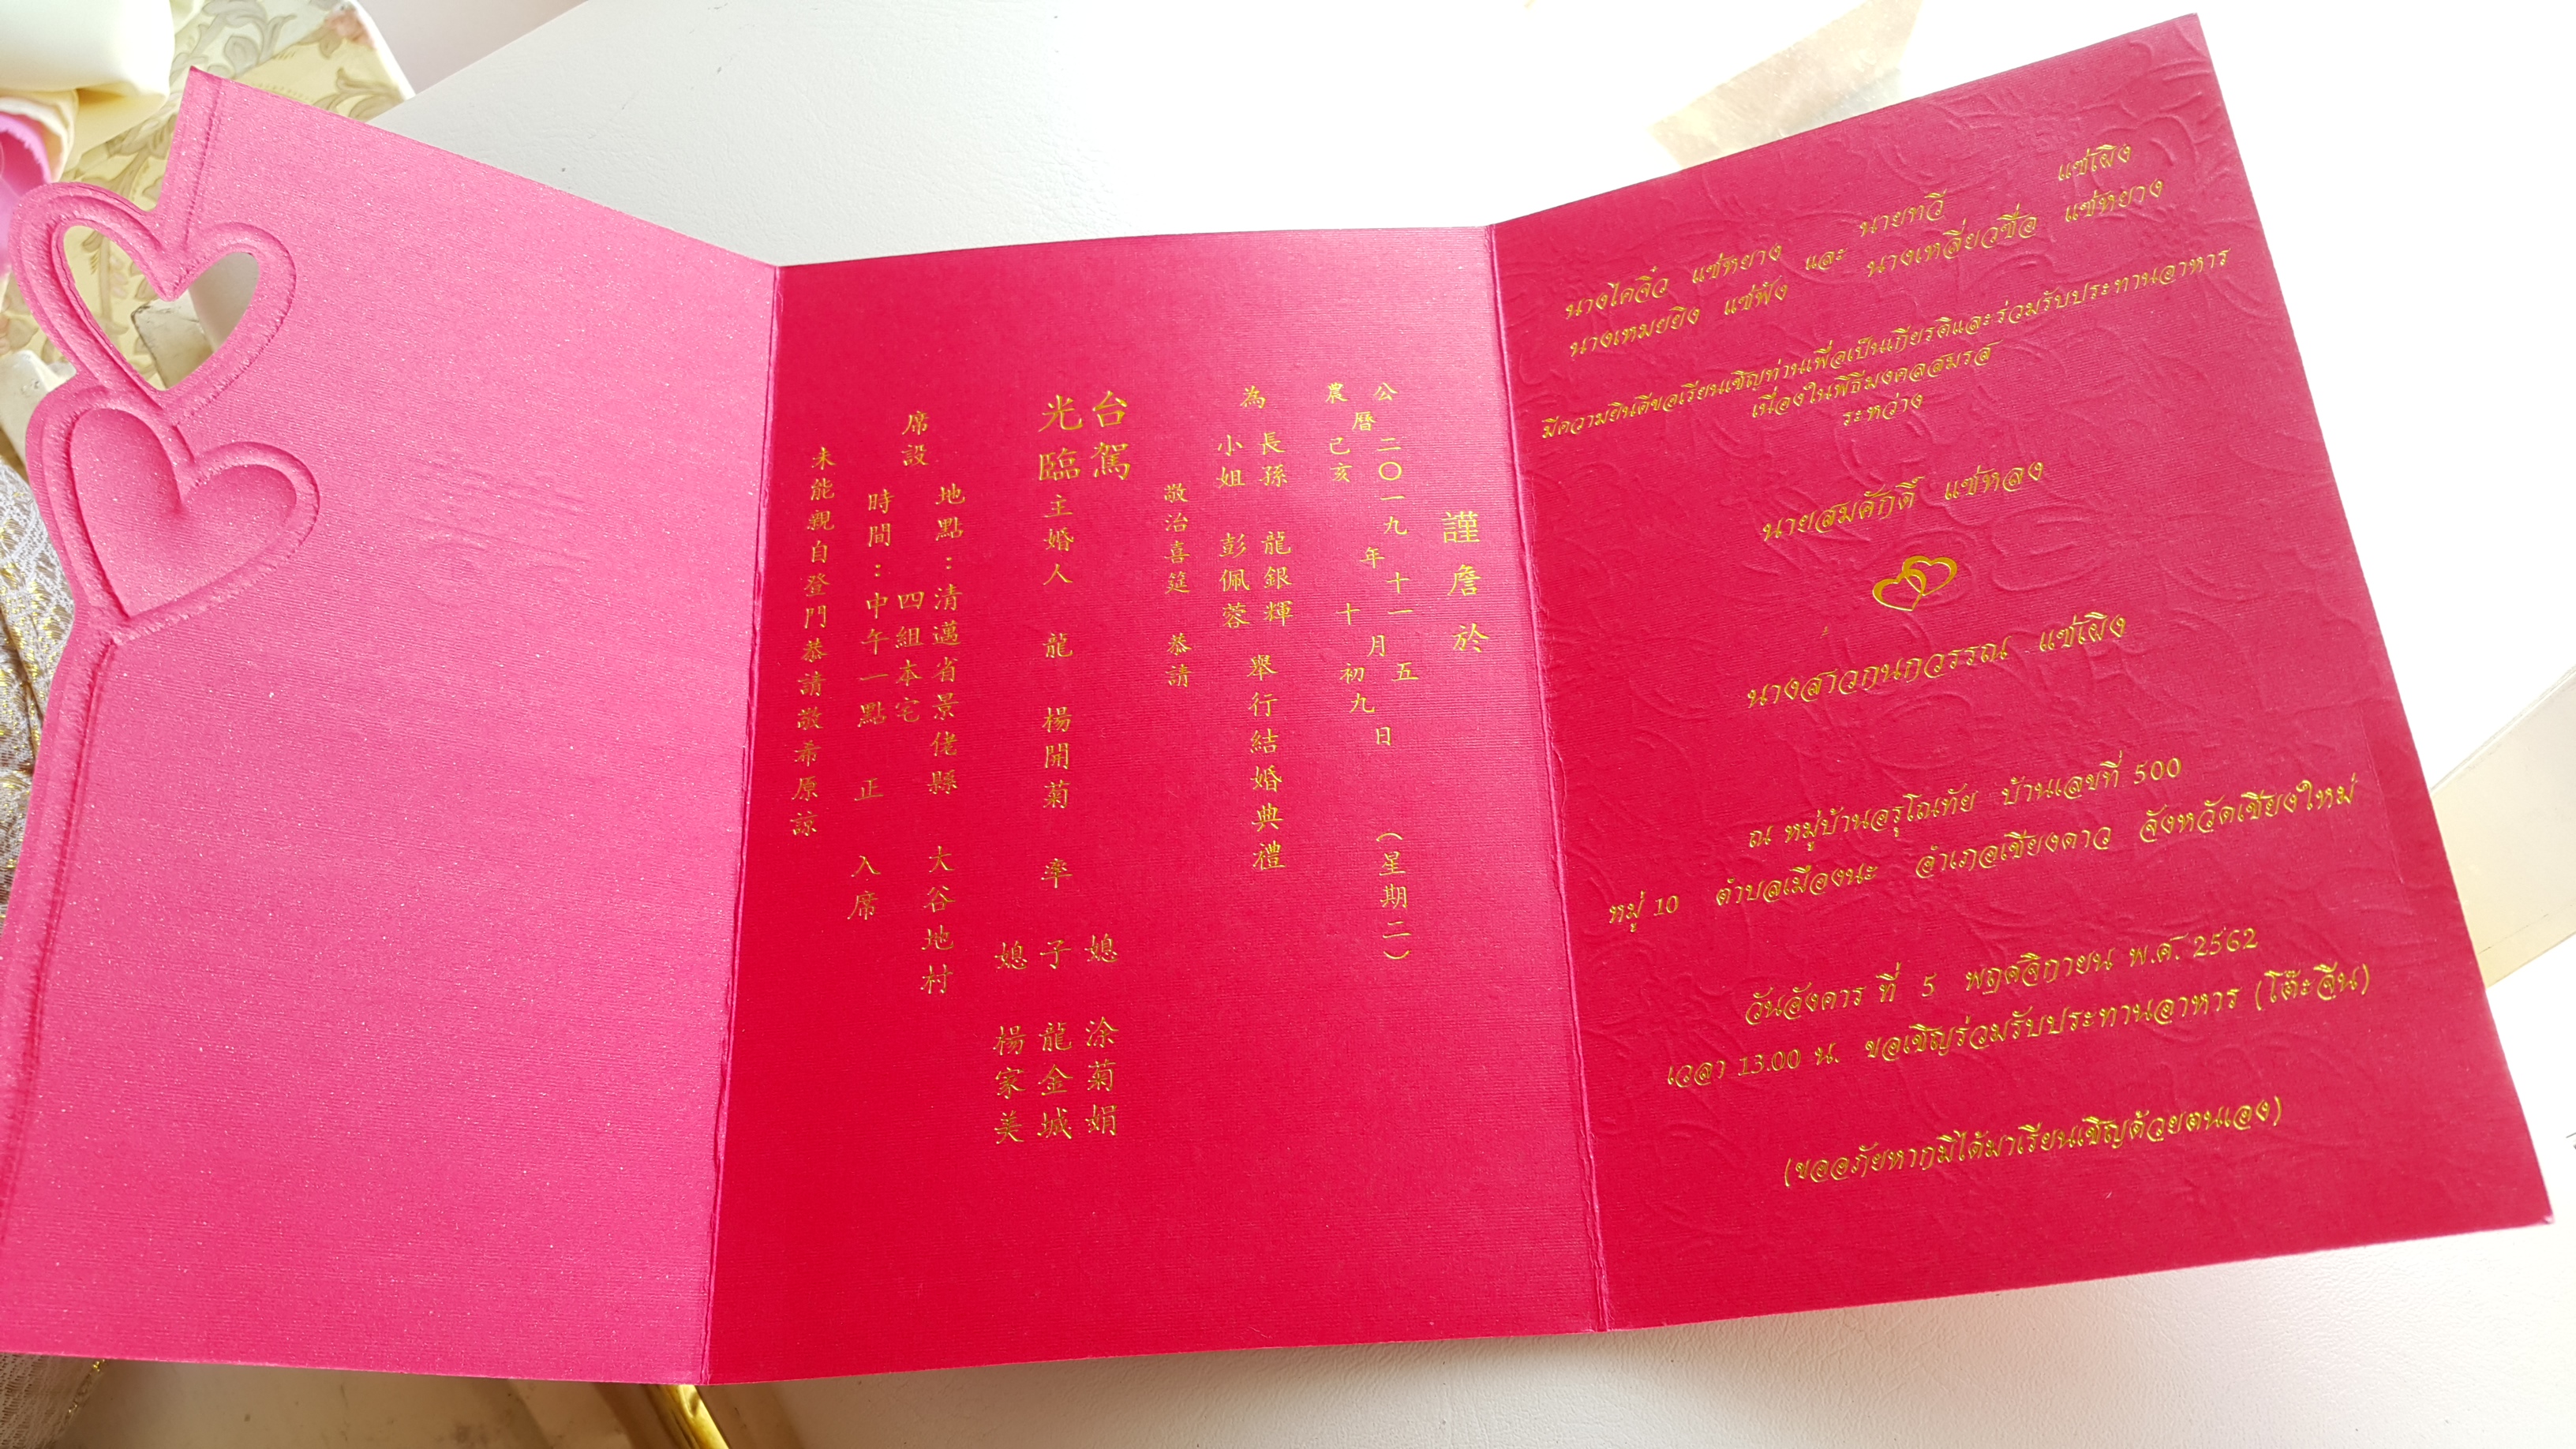 謹詹於
公曆二〇一九年十一月五日（星期二）
農曆己亥年十月初九日
為
長孫 龍銀輝
小姐 彭佩蓉
舉行結婚典禮
敬治喜筵 恭請
台駕
光臨
主婚人 龍 楊開菊 率
媳 涂菊娟
子 龍金城
媳 楊家美
席設
地點：清邁省景佬縣 大谷地村
四組本宅
時間：中午一點 正 入席
未能親自登門恭請敬希原諒
นางไคจิ๋ว แซ่หยาง และ นายทวี แซ่เผิง
นางเหมยยิง แซ่ฟัง นางเหลี่ยวซื่อ แซ่หยาง
มีความยินดีขอเรียนเชิญท่านเพื่อเป็นเกียรติและร่วมรับประทานอาหาร
เนื่องในพิธีมงคลสมรส
ระหว่าง
นายสมศักดิ์ แซ่หลง
นางสาวกนกวรรณ แซ่เผิง
ณ หมู่บ้านอรุโณทัย บ้านเลขที่ 500
หมู่ 10 ตำบลเมืองนะ อำเภอเชียงดาว จังหวัดเชียงใหม่
วันอังคาร ที่ 5 พฤศจิกายน พ.ศ. 2562
เวลา 13.00 น. ขอเชิญร่วมรับประทานอาหาร (โต๊ะจีน)
(ขออภัยหากมิได้มาเรียนเชิญด้วยตนเอง)